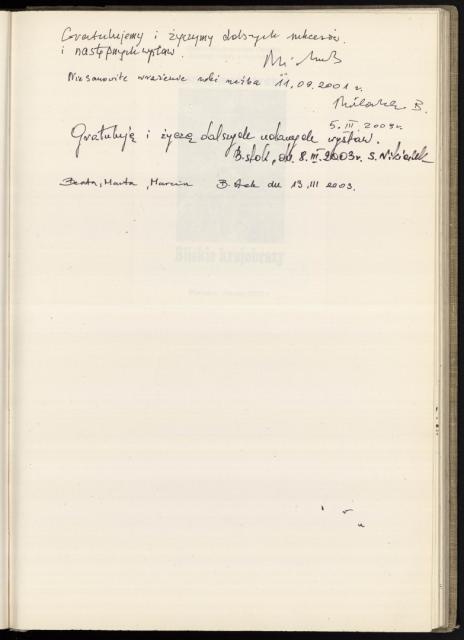 Gratulujemy i życzymy dalszych sukcesów
i następnych wystaw.
Niesamowite wrażenie robi 11.09.2001 r.
B.
5. III 2003r.
Gratuluję i życzę dalszych udanych wystaw.
B.stok, dn. 8. III. 2003r. S.
Beata, Marta, Marcin B.stok dn 13. III 2003.
Bliskie krajobrazy